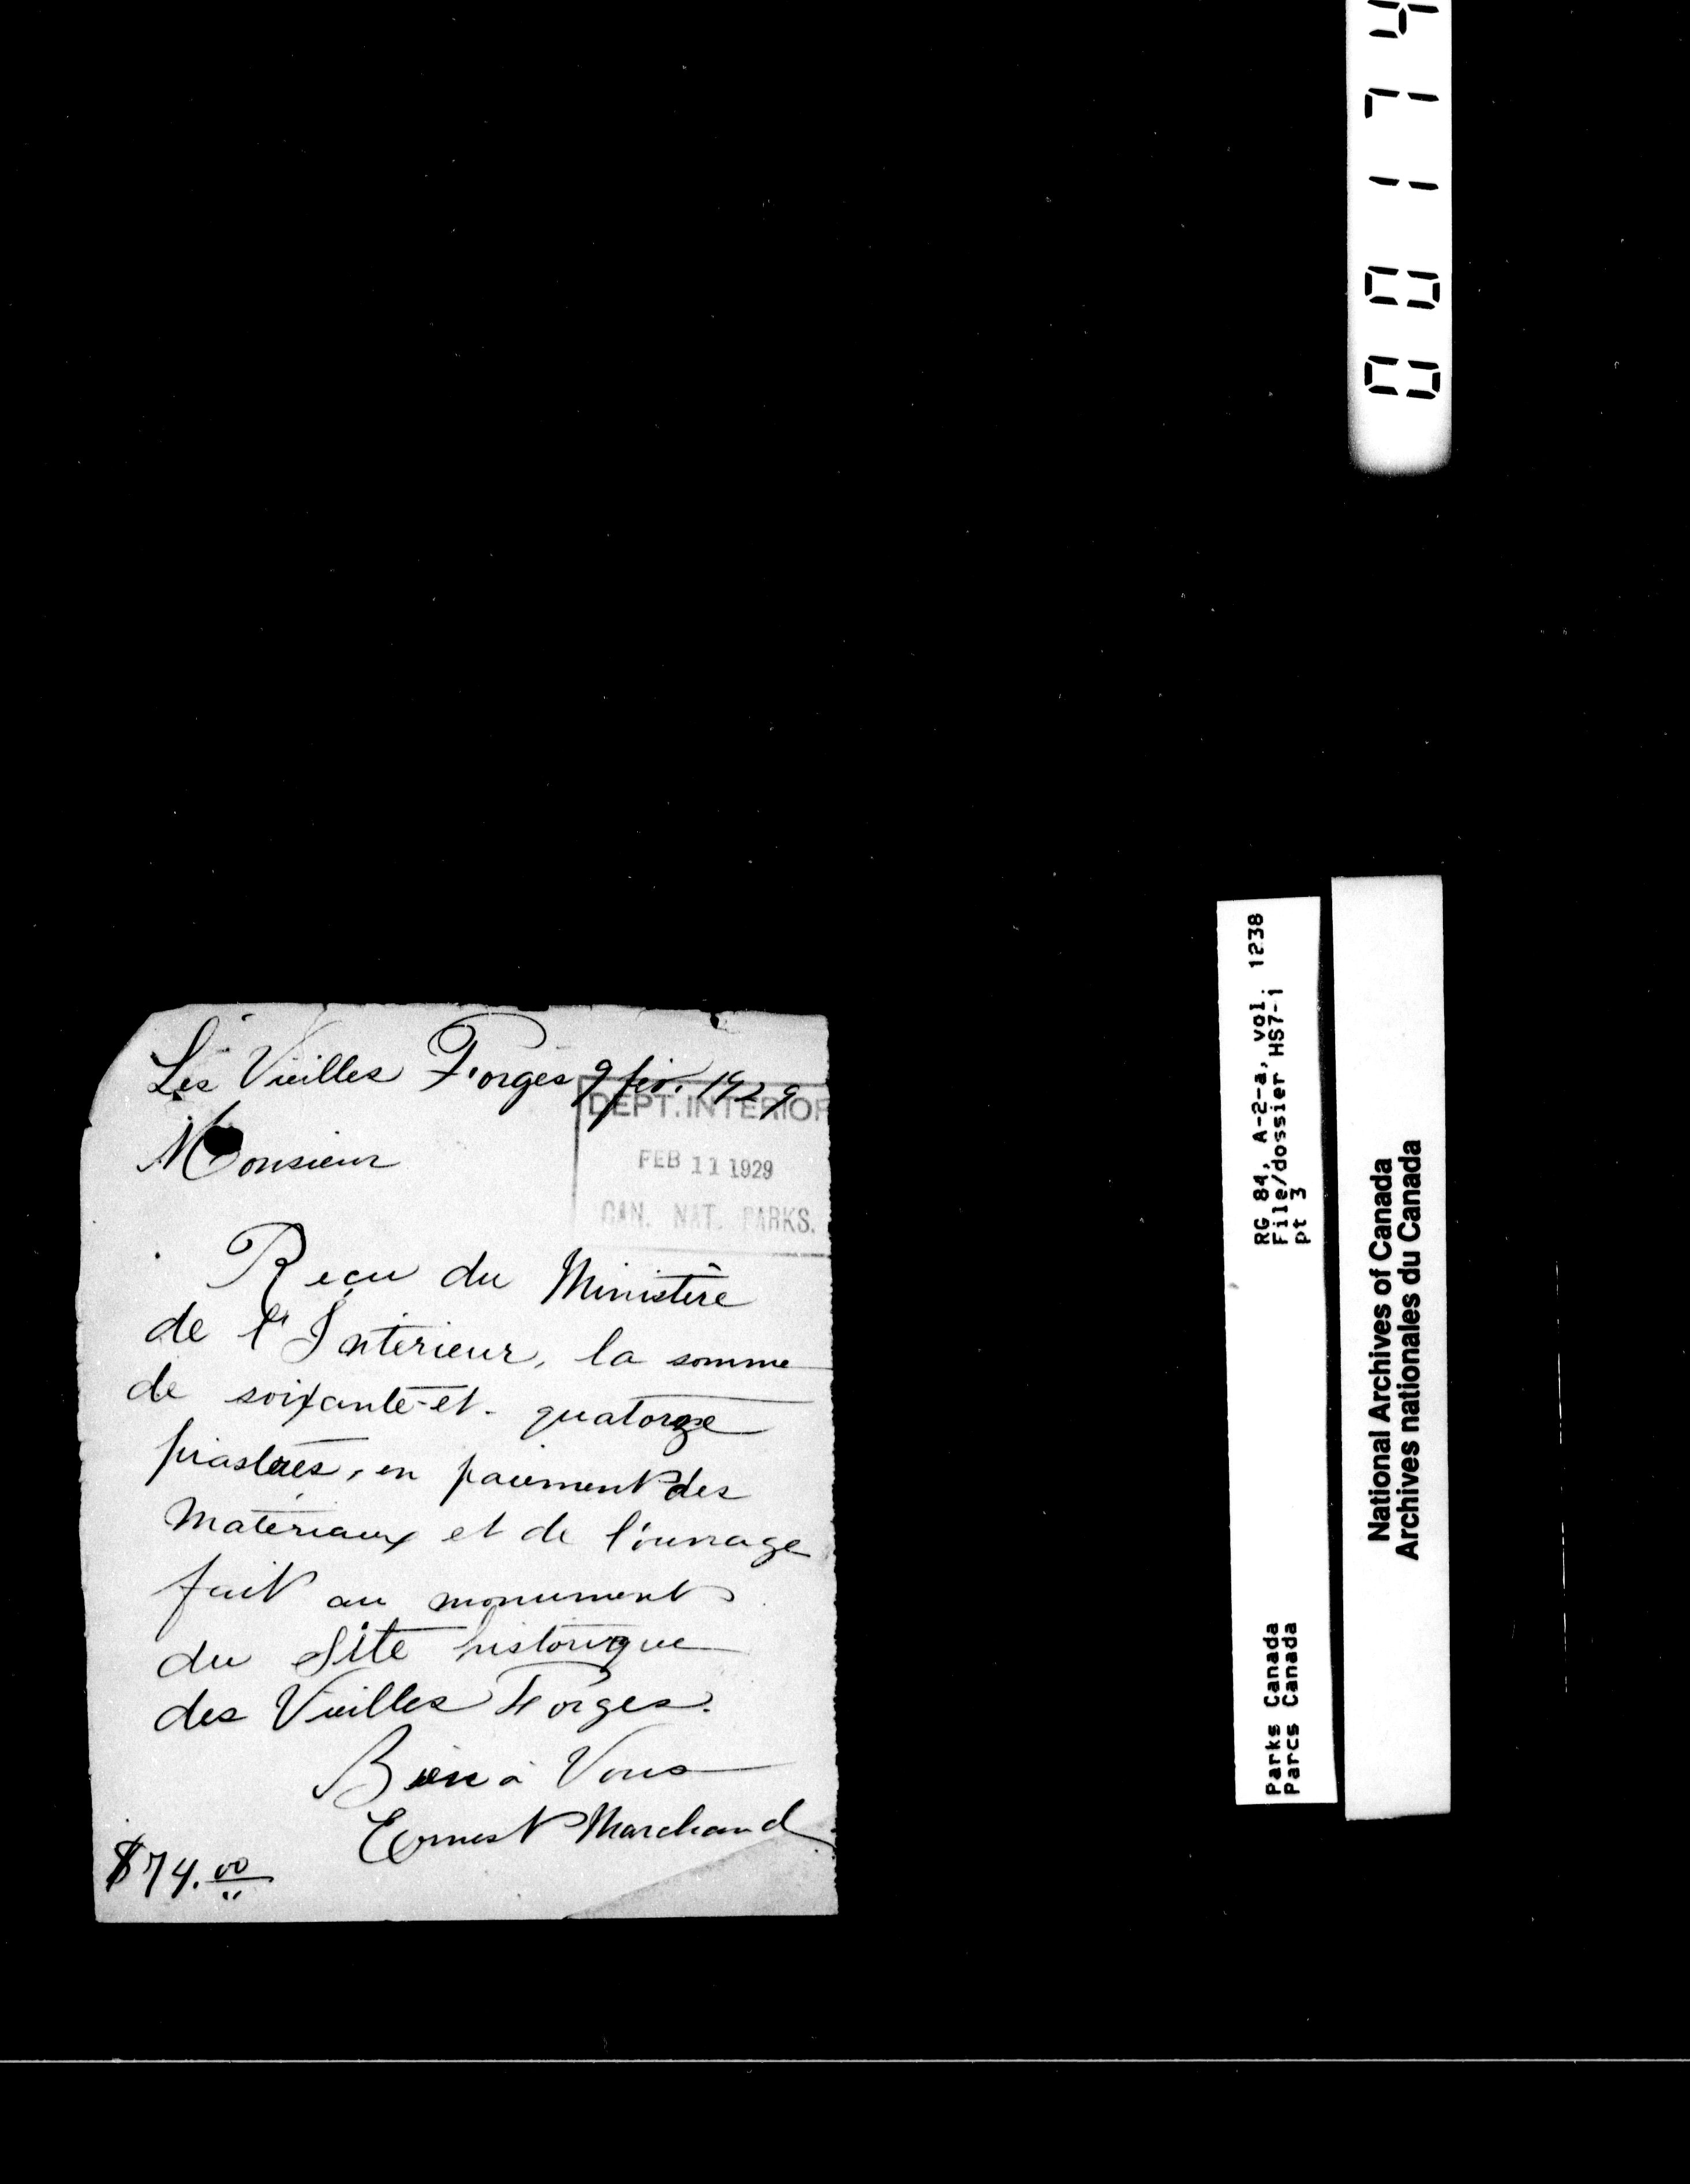 Les Vieilles Forges 9 fév. 1929
DEPT. INTERIOR
FEB 11 1929
CAN. NAT. PARKS.
Monsieur
Reçu du Ministère
de l'Intérieur, la somme
de soixante-et-quatorze
piastres, en paiement des
Matériaux et de l'ouvrage
fait au monument
du Site historique
des Vieilles Forges.
Bien à Vous
Ernest Marchand
$74.00
RG 84, A-2-a, vol. 1238
File/dossier HS7-1
pt 3
Parks Canada
Parcs Canada
National Archives of Canada
Archives nationales du Canada
00174